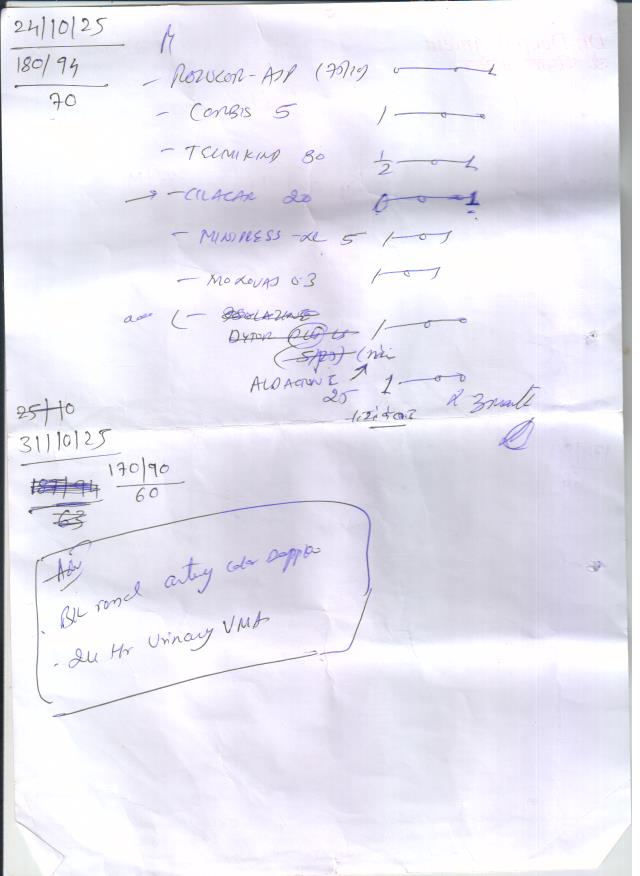 24/10/25
180/94
70
- ROZUCOR-ASP (75/10) o—o—1
- CONBIS 5 1—o—o
- TELMIKIND 80 1/2—o—1
→ - CILACAR 20 0—o—1
- MINIPRESS-XL 5 1—o—1
- MOXOVAS 0.3 1—o—1
DYTOR PLUS LS 1—o—o
(5/25)
ALDACTONE 1—o—o
25
25/10
31/10/25
187/94 170/90
63 60
Adv
. B/L renal artery color Doppler
. 24 Hr Urinary VMA